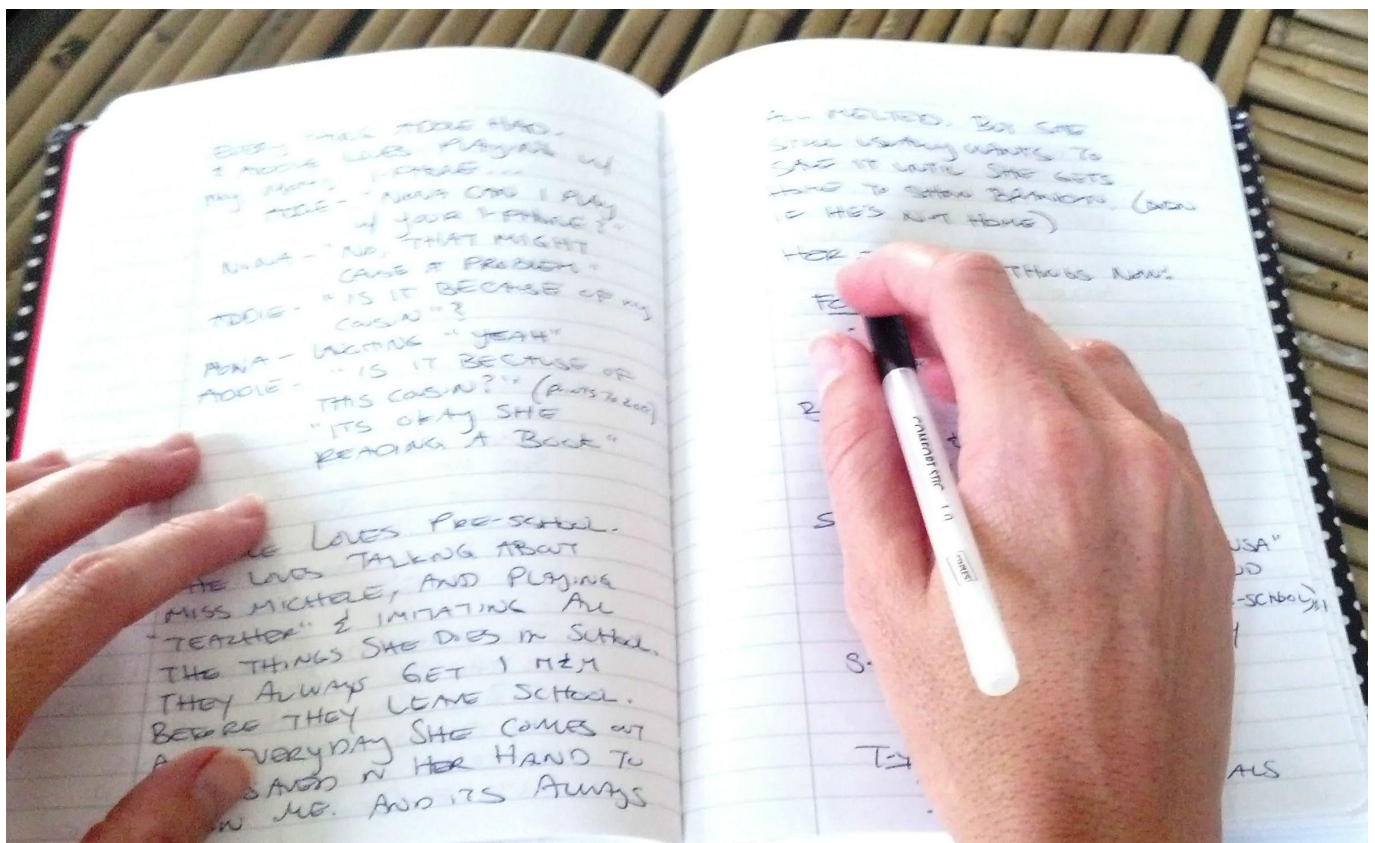 EVERY THING ADDIE HAD.
& ADDIE LOVES PLAYING W/
MY MOM'S I-PHONE...
ADDIE - "NANA CAN I PLAY
W/ YOUR I-PHONE?"
NANA - "NO, THAT MIGHT
CAUSE A PROBLEM"
ADDIE - "IS IT BECAUSE OF MY
COUSIN"?
NANA - LAUGHING "YEAH"
ADDIE - "IS IT BECAUSE OF
THIS COUSIN?" (POINTS TO ZOE)
"ITS OKAY SHE
READING A BOOK"
LOVES PRE-SCHOOL.
SHE LOVES TALKING ABOUT
MISS MICHELE, AND PLAYING
"TEACHER" & IMITATING ALL
THE THINGS SHE DOES IN SCHOOL.
THEY ALWAYS GET 1 M&M
BEFORE THEY LEAVE SCHOOL.
EVERYDAY SHE COMES OUT
SAVED IN HER HAND TO
ME. AND ITS ALWAYS
ALL MELTED. BUT SHE
STILL USUALLY WANTS TO
SAVE IT UNTIL SHE GETS
HOME TO SHOW BRANDON. (EVEN
IF HE'S NOT HOME)
HER THINGS NOW:
COMFORTSTIC 1.0
USA"
-SCHOOL)
ALS